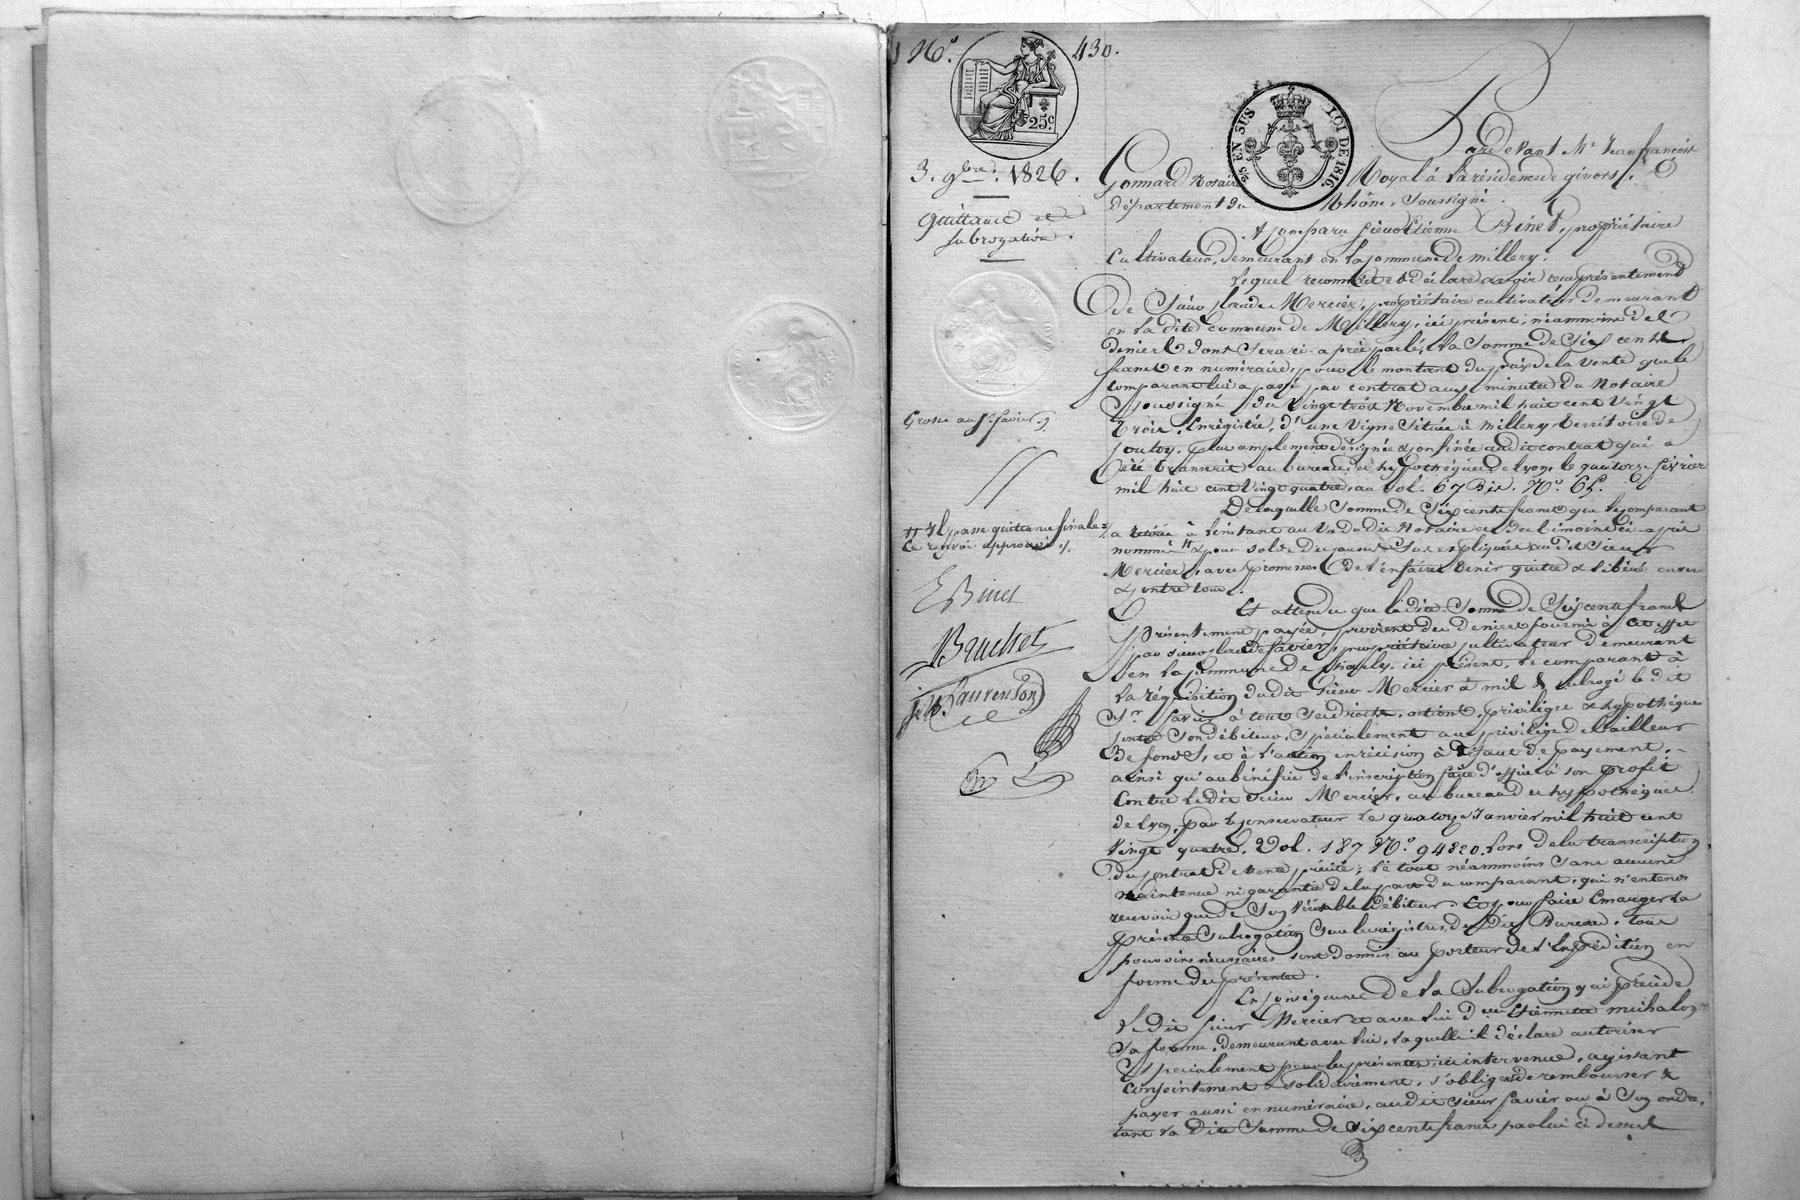 N.º 430.
25c
25 EN SUS LOI DE 1816.
3. 9bre. 1826.
Quittance et
subrogation.
Grosse au Sr. favier
# Il passe quittance finale
Ce renvoi approuvé
E Binet
Bruchet
Laurenson
Pardevant Me. Jean françois
Gonnard Notaire Royal à la résidence de givors,
département du Rhône, soussigné.
A comparu sieur Etienne Binet, propriétaire
Cultivateur, demeurant en la commune de millery.
Lequel reconnait et déclare avoir reçu présentement
De Sieur Claude Mercier, propriétaire cultivateur demeurant
en la dite commune de Millery, ici présent, néanmoins des
deniers dont sera ci-après parlé, la somme de Six cents
francs en numéraire, pour le montant du prix de la vente que le
comparant lui a passé par contrat aux minutes du Notaire
soussigné du Vingt trois Novembre mil huit cent Vingt
trois, Enregistré, d'une Vigne située à Millery territoire de
plus amplement désignée & confinée audit contrat qui a
été transcrit au bureau des hypothèques de Lyon, le quatorze février
mil huit cent Vingt quatre, au Vol. 67 Bis. N.º 65.
De laquelle Somme de Six cents francs que le comparant
a retirée à l'instant au Vu dudit Notaire et des témoins ci-après
nommés # & pour solde du susdit audit Sieur
Mercier, avec promesse de l'en faire tenir quitte & libéré envers
& contre tous.
Et attendu que la dite Somme de Six cents francs
présentement payée, provient des deniers fournis à cet effet
par sieur favier, propriétaire cultivateur demeurant
en la commune de ici présent, le comparant à
la réquisition dudit sieur Mercier à mis & subrogé le dit
Sr. favier à tous ses droits, actions, privilèges & hypothèques
contre son débiteur, spécialement au privilège de bailleur
De fonds, et à l'action en récision à défaut de payement,
ainsi qu'au bénéfice de l'inscription faite d'office à son profit
Contre le dit Sieur Mercier, au bureau des hypothèques
de Lyon, par le conservateur le quatorze Janvier mil huit cent
Vingt quatre. Vol. 187 N.º 94820. lors de la transcription
du contrat de vente précité; le tout néanmoins sans aucune
maintenue ni garantie de la part du comparant, qui n'entend
recevoir que de son Véritable débiteur. Et pour faire Emarger la
présente Subrogation sur les registres du dit Bureau, tous
pouvoirs nécessaires sont donnés au porteur de l'Expédition en
forme des présentes.
En conséquence De la Subrogation qui précède
le dit sieur Mercier et avec lui De. Etiennette michalon
sa femme, demeurant avec lui, laquelle il déclare autoriser
Spécialement pour les présentes ici intervenue, agissant
conjointement & solidairement, s'obligent de rembourser &
payer aussi en numéraire, audit sieur favier ou à son ordre,
la dite Somme de Six cents francs par lui ci dessus